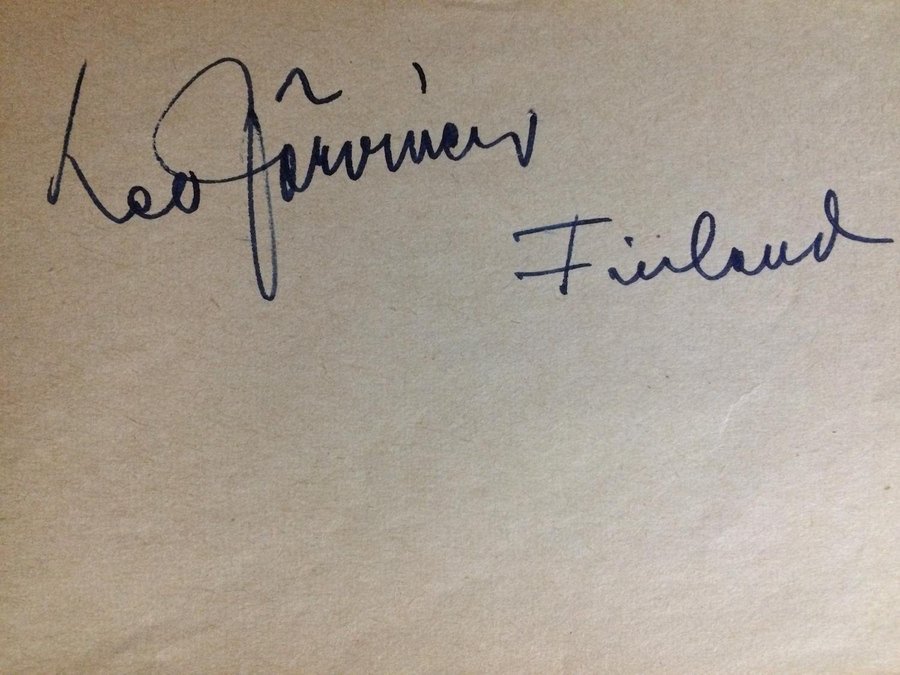 Leo Järvinen
Finland